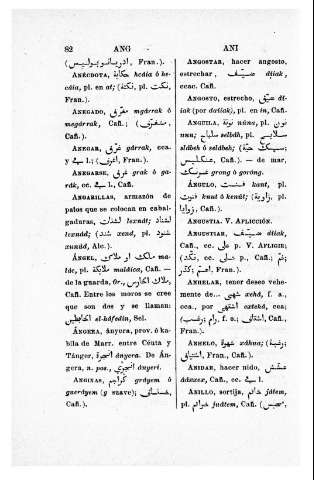 82 ANG ANI
(ادريانوبوليس, Fran.).
ANÉCDOTA, حكاية hcáia ó he-
cáia, pl. en at; (نكتة, pl. نكت,
Fran.).
ANEGADO, مغرّق mgárrak ó
megárrak, Cañ.; (متغرّق,
Cañ.).
ANEGAR, غرّق gárrak, cca.
y ل l.; (اغرق, Fran.).
ANEGARSE, غرق grak ó ga-
rák, cc. ل l., Cañ.
ANGARILLAS, armazón de
palos que se colocan en cabal-
gaduras,
(شند xend, pl. شنود
xunúd, Alc.).
ÁNGEL, ملك ó ملاك, ma-
lác, pl. ملايكة maláica, Cañ. —
de la guarda, Or., ملاك,
Cañ. Entre los moros se cree
que son dos y se llaman:
الحافظين el-háfedin, Sel.
ÁNGERA, ányera, prov. ó ka-
bila de Marr. entre Céuta y
Tánger, انجرة ányera. De Án-
gera, n. pos., انجري ányeri.
ANGINAS, grdyem ó
guerdyem (g suave); خنـاق,
Cañ.).
ANGOSTAR, hacer angosto,
estrechar, ضيّق diiak,
ccac. Cañ.
ANGOSTO, estrecho, ضيّق di-
iak (por daiiak), pl. en in, Cañ.
ANGUILA, نونة núna, pl. نون
nun; سلباح selbáh, pl.
sldbeh ó seldbeh;
Cañ.). — de mar,
grong ó goróng.
ÁNGULO, قنت kunt, pl.
قنوت knut ó kenút; (زاوية, pl.
زوايا, Cañ.).
ANGUSTIA. V. AFLICCIÓN.
ANGUSTIAR, ضيّق diiak,
Cañ., cc. على p. V. AFLIGIR;
(نكّد, cc. على p., Cañ.; غمّ,
Fran.).
ANHELAR, tener deseo vehe-
mente de... شهى xehá, f. a.,
cca., por اشتهى eztehá, cca.;
(رغب, f. o.; اشتاق, Cañ.,
Fran.).
ANHELO, شهوة xáhua; (رغبة;
اشتياق, Fran., Cañ.).
ANIDAR, hacer nido, عشّش
ddxxex, Cañ., cc. ل l.
ANILLO, sortija, خاتم játem,
pl. خواتم juátem, Cañ. (محبس, Cañ.).